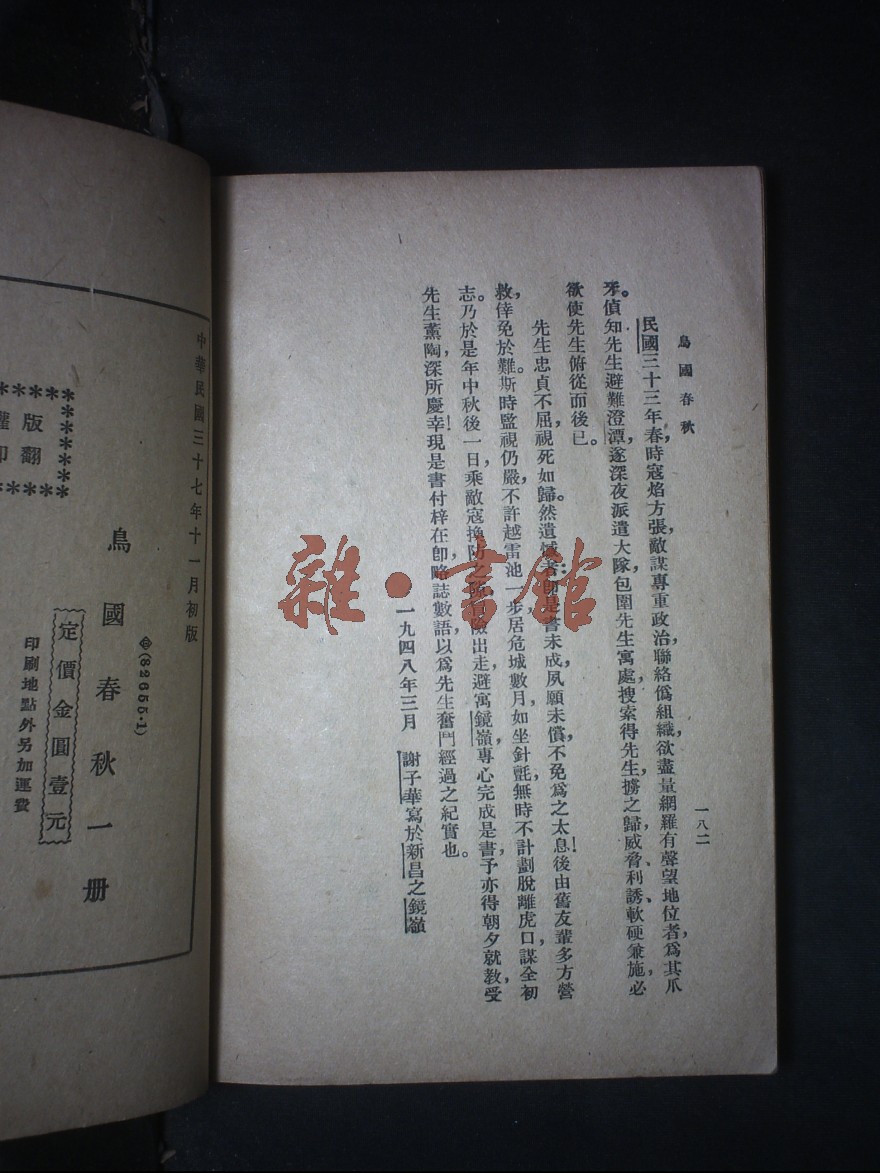 鳥國春秋
一八二
民國三十三年春，時寇焰方張，敵謀專重政治聯絡僞組織，欲盡量網羅有聲望地位者，爲其爪
牙。偵知先生避難澄潭，遂深夜派遣大隊，包圍先生寓處，搜索得先生，擄之歸，威脅、利誘、軟硬兼施，必
欲使先生俯從而後已。
先生忠貞不屈，視死如歸。然遺憾者：卽是書未成，夙願未償，不免爲之太息！後由舊友輩多方營
救，倖免於難。斯時監視仍嚴，不許越雷池一步，居危城數月，如坐針氈，無時不計劃脫離虎口，謀全初
志。乃於是年中秋後一日，乘敵寇換防之險出走，避寓鏡嶺，專心完成是書，予亦得朝夕就教，受
先生薰陶，深所慶幸！現是書付梓在卽，略誌數語，以爲先生奮鬥經過之紀實也。
一九四八年三月　謝子華寫於新昌之鏡嶺
中華民國三十七年十一月初版
版
翻
權
印
(82655·1)
鳥國春秋一册
定價金圓壹元
印刷地點外另加運費
雜·書館